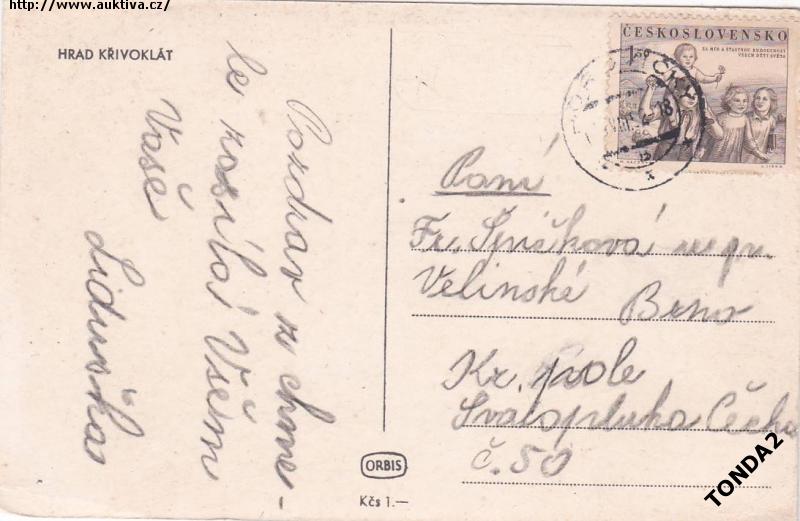 http://www.auktiva.cz/
HRAD KŘIVOKLÁT
Pozdrav z chme-
le zasílá Všem
Vaše
Liduška
ČESKOSLOVENSKO
ZA MÍR A ŠŤASTNOU BUDOUCNOST
VŠECH DĚTÍ SVĚTA
Paní
Fr.
Velinské Brno
Kr. pole
Svatopluka Čecha
č. 50
ORBIS
Kčs 1.—
TONDA2